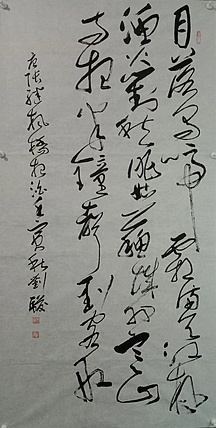 月落烏啼霜滿天江楓
漁火對愁眠姑蘇城外寒山
寺夜半鐘聲到客船
唐張繼楓橋夜泊寅秋劉駿